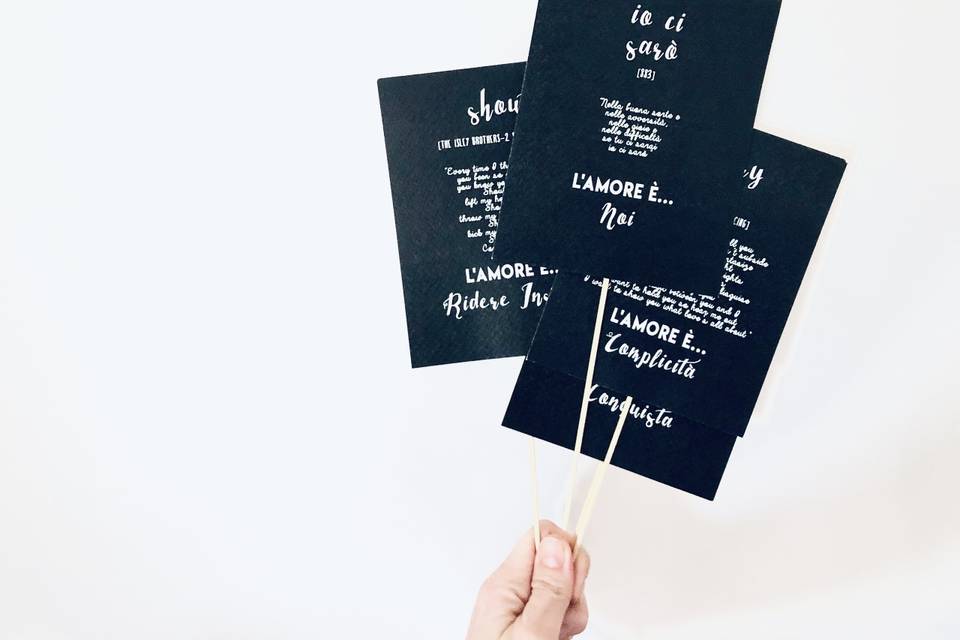 io ci
sarò
[883]
Nella buona sorte e
nelle avversità,
nelle gioie e
nelle difficoltà
se tu ci sarai
io ci sarò
L'AMORE È...
Noi
shou
(THE ISLEY BROTHERS-2
"Every time I th
you been so
you know yo
Shou
lift my he
Sho
throw my
Sh
kick my
Sh
Co
L'AMORE È...
Ridere Ins
ey
cing)
ll you
t subside
ntasize
ht
ights
isguise
want to hold you so hear me out
I want to show you what love's all about"
L'AMORE È...
Complicità
Conquista